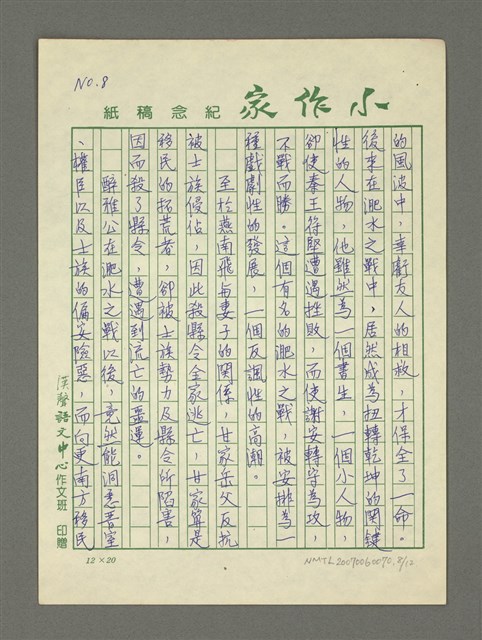 NO.8
小作家紀念稿紙
的風波中，幸虧友人的相救，才保全了一命。
後來在淝水之戰中，居然成為扭轉乾坤的関鍵
性的人物，他雖然為一個書生，一個小人物，
卻使秦王符堅遭遇挫敗，而使謝安轉守為攻，
不戰而勝。這個有名的淝水之戰，被安排為一
種戲劇性的發展，一個反諷性的高潮。
至於燕南飛與妻子的関係，甘家岳父反抗
被士族侵佔，因此殺縣令全家逃亡，甘家算是
移民的拓荒者，卻被士族勢力及縣令所陷害，
因而殺了縣令，遭遇到流亡的噩運。
醉雅公在淝水之戰以後，竟然能洞悉晉室
、權臣以及士族的偏安險惡，而向更南方移民
漢聲語文中心作文班 印贈
12×20
NMTL20070060070.8/12